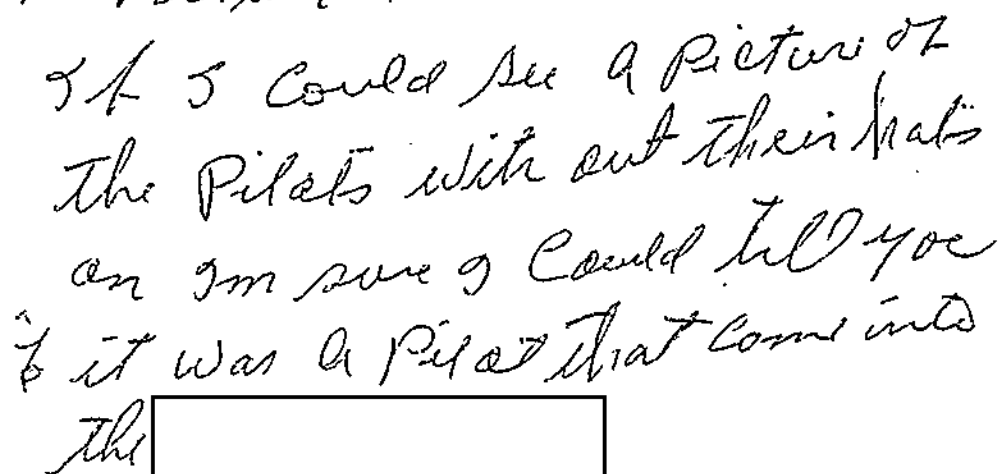 If I Could see a Picture of
the Pilots with out their hats
on Im sure I Could tell you
if it was a Pilot that come into
the